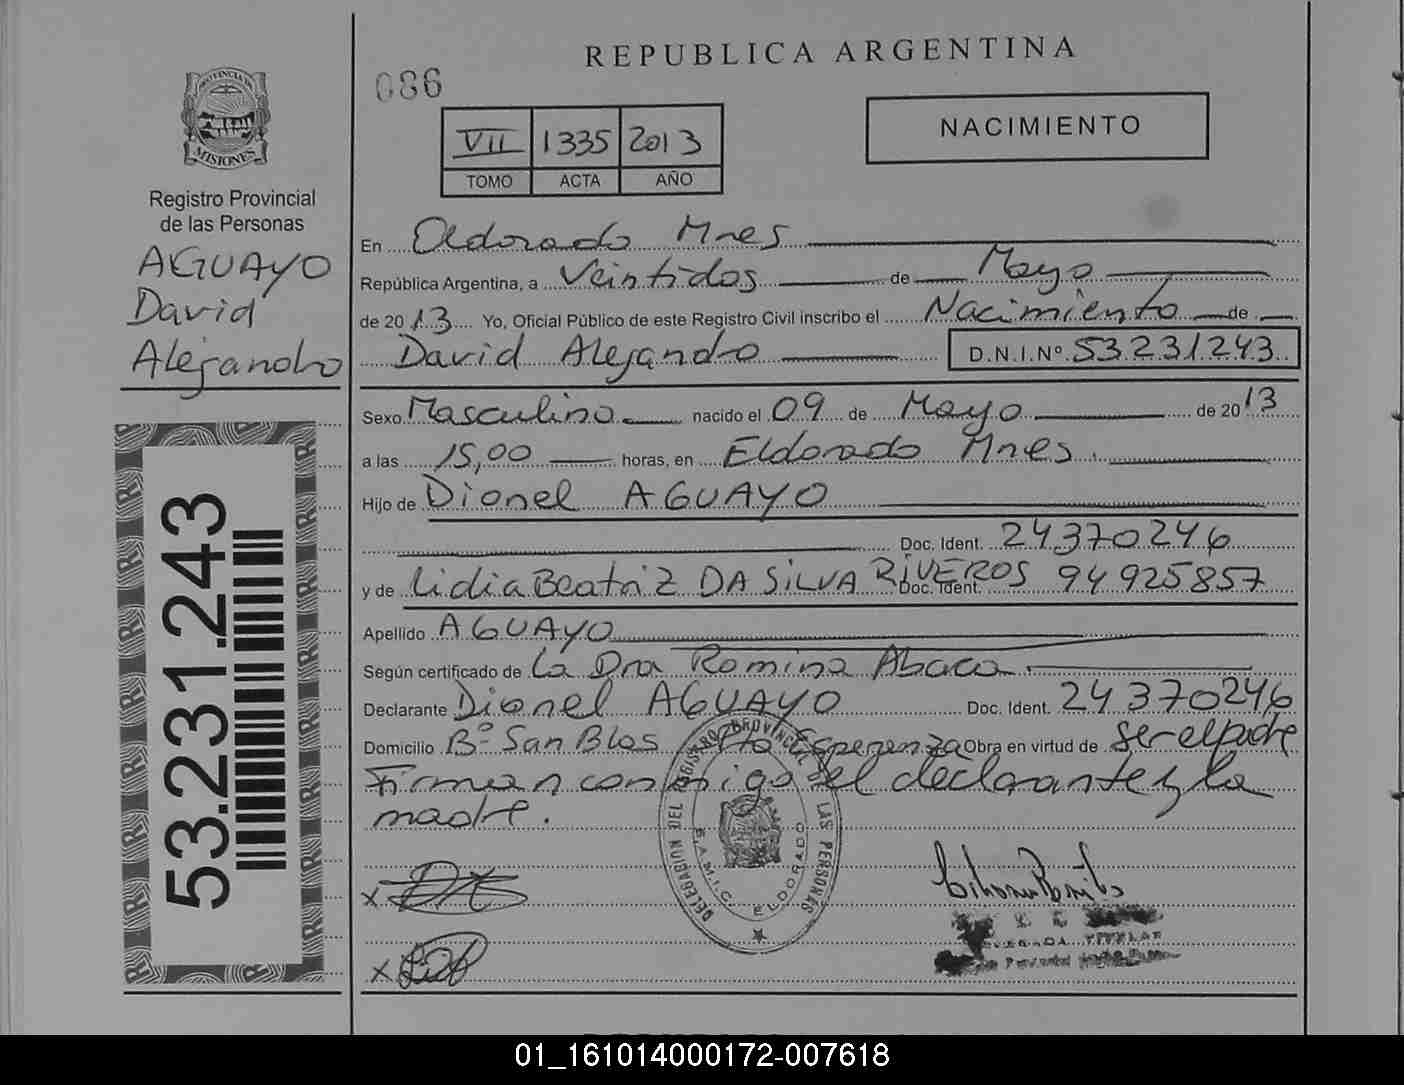 REPUBLICA ARGENTINA
086
NACIMIENTO
VII 1335 2013
TOMO ACTA AÑO
PROVINCIA DE
MISIONES
Registro Provincial
de las Personas
AGUAYO
David
Alejandro
53.231.243
En Eldorado Mnes
República Argentina, a Veintidos de Mayo
de 2013 Yo, Oficial Público de este Registro Civil inscribo el Nacimiento de
David Alejandro D.N.I.Nº 53231243
Sexo Masculino nacido el 09 de Mayo de 2013
a las 15,00 horas, en Eldorado Mnes.
Hijo de Dionel AGUAYO
Doc. Ident. 24370246
y de Lidia Beatriz DA SILVA RIVEROS Doc. Ident. 94925857
Apellido AGUAYO
Según certificado de La Dra Romina Abaca
Declarante Dionel AGUAYO Doc. Ident. 24370246
Domicilio Bº San Blas Pto Esperanza Obra en virtud de Ser el padre
Firman conmigo el declarante y la
madre.
DELEGADON DEL REGISTRO PROVINCIAL DE LAS PERSONAS
S.A.M.I.C. ELDORADO
x
x
DELEGADA TITULAR
01_161014000172-007618